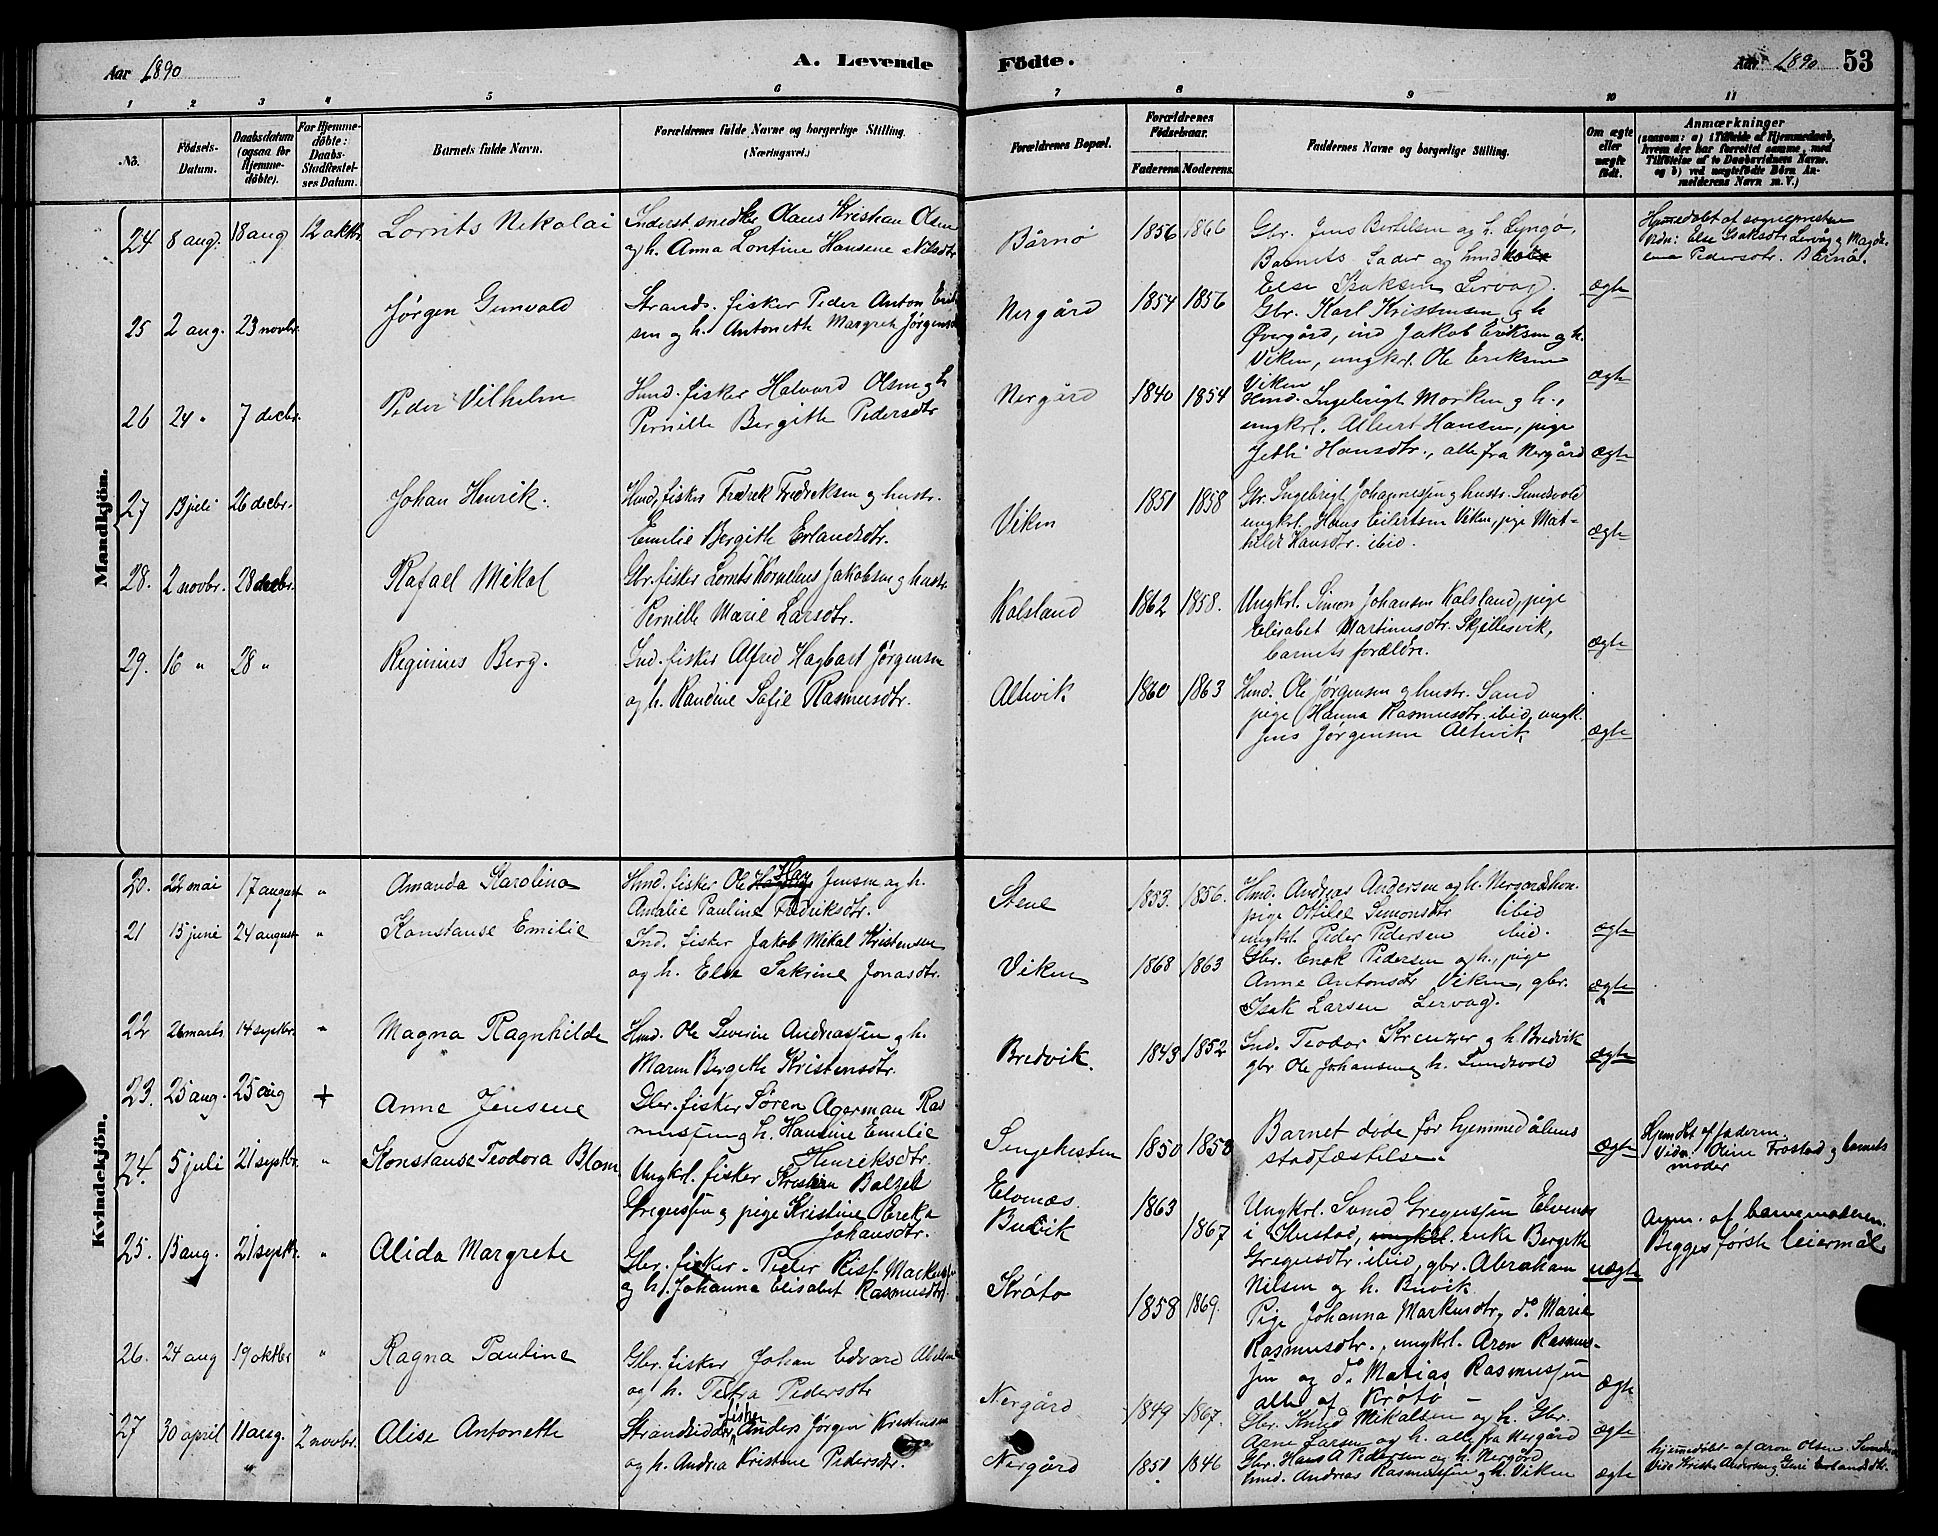 Aar 1890
A. Levende Födte.
Aar 1890 53
1 2 3 4 5 6 7 8 9 10 11
No.
Födsels-Datum.
Daabsdatum (ogsaa for Hjemme-döbte).
For Hjemme-döbte: Daabs-Stadfæstel-ses Datum.
Barnets fulde Navn.
Forældrenes fulde Navne og borgerlige Stilling. (Næringsvei.)
Forældrenes Bopæl.
Forældrenes Födselsaar.
Faderens Moderens
Faddernes Navne og borgerlige Stilling.
Om ægte eller uægte födt.
Anmærkninger
(saasom: a) i Tilfælde af Hjemmedaab, hvem der har forrettet samme, med Tilföielse af to Daabsvidners Navne, og b) ved uægtefödte Börn An-melderens Navn m. V.)
Mandkjön.
24 8 aug. 18 aug 12 oktbr Lornits Nikolai
Inderst snedker Olaus Kristian Olsen
og h. Anna Lontine Hansene Nilsdtr
Bårnø 1856 1866
Gbr. Jens Bertelsen og h. Lyngø,
Barnets Fader og
Else Isaksen Lervåg. ægte
Hjemedøbt af sognepresten
Vidn: Else Isaksdtr Lervåg og Magda-
lena Pedersdtr. Bårnø.
25 2 aug. 23 novbr. Jørgen Gunvald
Strands. fisker Peder Anton Erik
sen og h. Antonette Margrete Jørgensd
Nergård 1854 1856
Gbr. Karl Kristensen og h
Øvergård, ind Jakob Eriksen og h.
Viken, ungkrl. Ole Eriksen
Viken ægte
26 24 " 7 decbr. Peder Vilhelm
Hmd. fisker Halvard Olsen og h
Pernille Bergitte Pedersdtr
Nergård 1840 1854
Hmd. Ingebrigt Morken og h.,
ungkrl. Albert Hansen, pige
Jethe Hansdtr., alle fra Nergård ægte
27 13 juli 26 decbr. Johan Henrik.
Hmd. fisker Fredrek Fredreksen og hustr.
Emilie Bergith Erlandsdtr.
Viken 1851 1858
Gbr. Ingebrigt Johannessen og hustr. Sundsvold
ungkrl. Hans Eilertsen Viken, pige Mat-
hilde Hansdtr. ibid. ægte
28. 2 novbr. 28 decbr. Rafael Mikal
Gbr. fisker Lornts Kornelius Jakobsen og hustr.
Pernille Marie Larsdtr.
Kalsland 1862 1858.
Ungkrl. Simon Johansen Kalsland, pige
Elisabet Martinusdtr. Skjellesvik,
barnets forældre. ægte
29. 16 " 28 " Reginius Berg.
Ind. fisker Alfred Hagbart Jørgensen
og h. Randine Sofie Rasmusdtr.
Altevik 1860 1863
Hmd. Ole Jørgensen og hustr. Sand
pige Hanna Rasmusdtr. ibid, ungk.
Jens Jørgensen Altevik ægte
Kvindekjön.
20. 22 mai 17 august " Amanda Karolina
Hmd. fisker Ole Hag Jensen og h.
Amalie Pauline Fredriksdtr.
Stene 1853. 1856.
Hmd. Andreas Andersen og h. Nergårdhon.
pige Ottilee Simonsdtr ibid
ungkrl. Peder Pedersen ibid. ægte
21 15 juni 24 august " Konstanse Emilie
Ind. fisker Jakob Mikal Kristensen
og h. Else Sakrine Jonasdtr.
Viken 1868 1863
Gbr. Enok Pedersen og h., pige
Anne Antonsdtr Viken, gbr.
Isak Larsen Lervåg. ægte
22 26 marts 14 septbr. " Magna Ragnhilde
Hmd. Ole Severin Andreassen og h.
Maren Bergethe Kristensdtr.
Bredvik. 1843 1852
Ind. Teodor Kreuzer og h. Bredvik
gbr Ole Johansen og h. Sundsvold ægte
23. 25 aug. 25 aug + Anne Jensene
Gbr. fisker Søren Agerman Ras
mussen og h. Hansine Emilie
Henriksdtr.
Sengekisten 1850 1858
Barnet døde før hjemmedåbens
stadfæstelse. ægte
Hjemdbt af faderen
Vidn: Oline Frostad og barnets
moder
24. 5 juli 21 septbr. " Konstanse Teodora Blom
Ungkrl. fisker Kristian Balzer
Gregussen og pige Kristine Ereka
Johansdtr.
Elvenæs
Buvik 1863 1867
Ungkrl. Svend Gregussen Elvenes
i Ibestad, enke Bergete
Gregusdtr. ibid, gbr. Abraham
Nilsen og h. Buvik. uægte
Angm. af barnemoderen.
Begges første leiermål
25. 15 aug. 21 septbr. " Alida Margrete
Gbr. fisker Peder Rist Markussen
og h. Johanna Elisabet Rasmusdtr.
Krøtø 1858 1869.
Pige Johanna Markusdtr, do Marie
Rasmusdtr., ungkrl. Aron Rasmus-
sen og do Matias Rasmussen
alle af Krøtø ægte
26. 24 aug 19 oktbr " Ragna Pauline
Gbr. fisker Johan Edvard Abelsen
og h. Petra Pedersdtr
Nergård 1849 1867.
Gbr. Knud Mikalsen og h. Gbr.
Arne Larsen og h. alle fra Nergård ægte
27 30 april 11 aug. 2 novbr. Alise Antonette
Strandsidder, fisker Anders Jørgen Kristensen
og h. Andrea Kristine Pedersdtr.
Nergård 1851 1846
Gbr. Hans A Pedersen og h. Nergård
hmd. Andreas Rasmussen og h. Viken ægte
hjemmedøbt af Aron Olsen